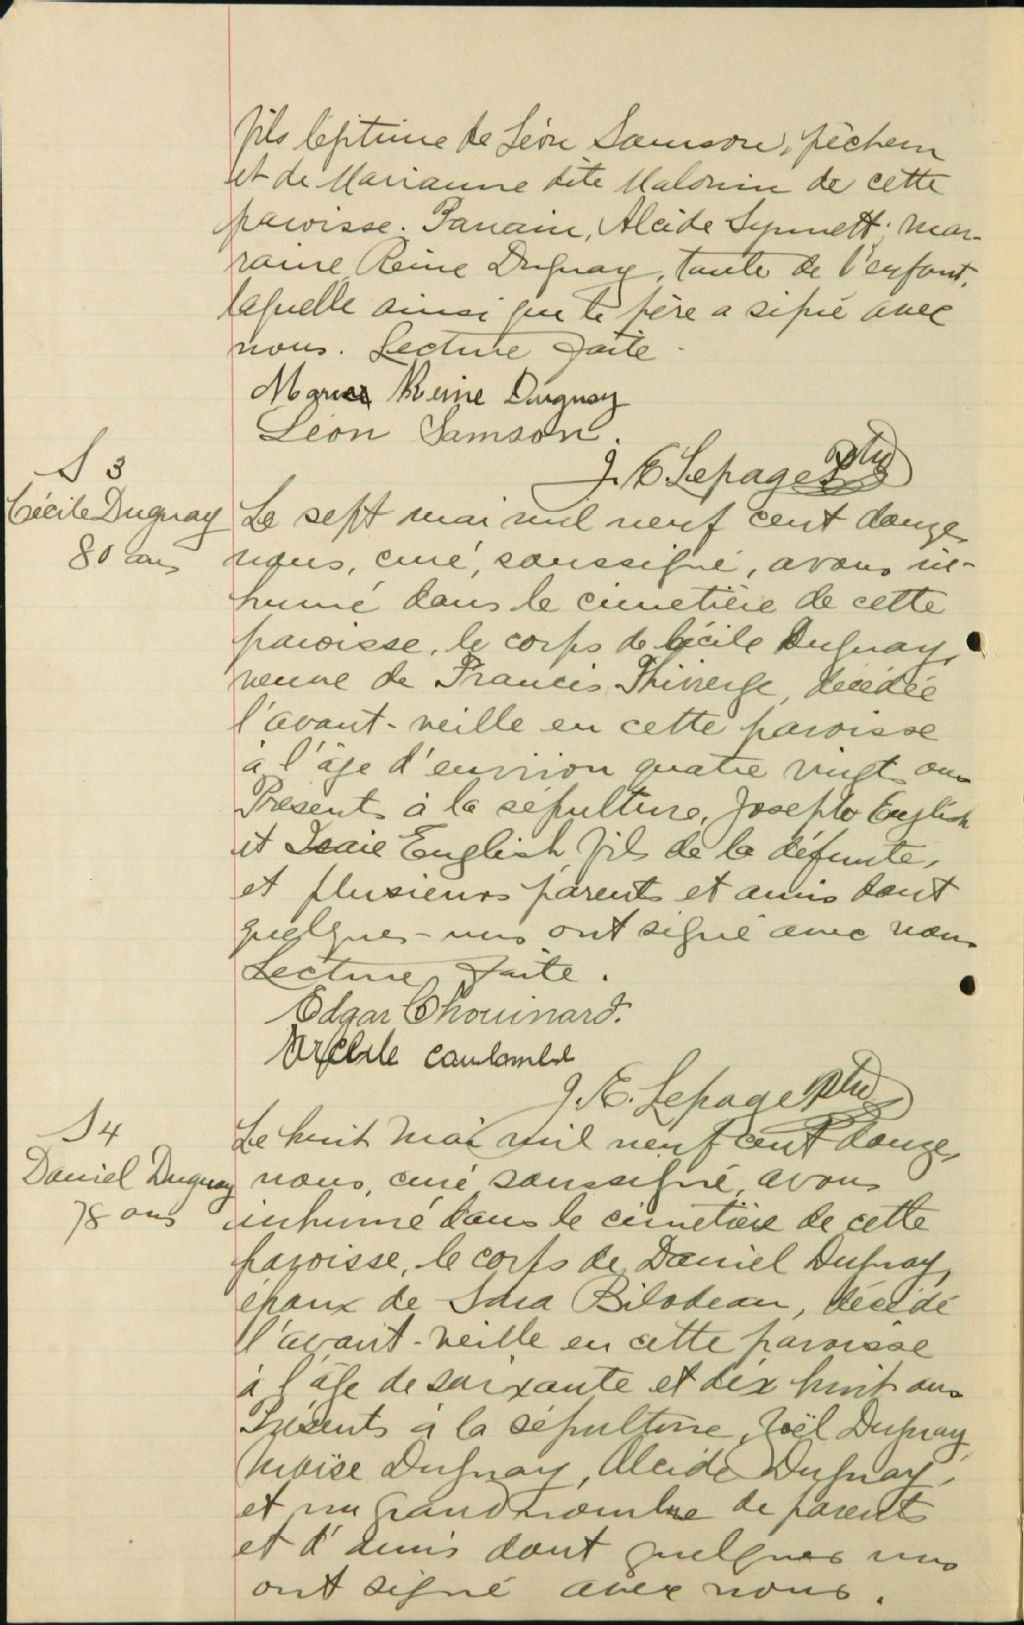 fils légitime de Léon Samson, pêcheur
et de Marianne dite Malouin de cette
paroisse. Parrain, Alcide Synnett; mar-
raine Reine Duguay, tante de l'enfant,
laquelle ainsi que le père a signé avec
nous. Lecture faite.
Marie Reine Duguay
Léon Samson.
J. E. Lepage Ptre
S 3
Cécile Duguay
80 ans
Le sept mai mil neuf cent douze
nous, curé, soussigné, avons in-
humé dans le cimetière de cette
paroisse, le corps de Cécile Duguay,
veuve de Francis Thivierge, décédée
l'avant-veille en cette paroisse
à l'âge d'environ quatre vingt ans
Présents à la sépulture, Joseph English
et Isaie English, fils de la défunte,
et plusieurs parents et amis dont
quelques-uns ont signé avec nous
Lecture faite.
Edgar Chouinard.
coulombe
J. E. Lepage Ptre
S 4
Daniel Duguay
78 ans
Le huit mai mil neuf cent douze,
nous, curé soussigné, avons
inhumé dans le cimetière de cette
paroisse, le corps de Daniel Duguay,
époux de Sara Bilodeau, décédé
l'avant-veille en cette paroisse
à l'âge de soixante et dix huit ans
Présents à la sépulture, Joël Duguay,
Moïse Duguay, Alcide Duguay,
et un grand nombre de parents
et d'amis dont quelques uns
ont signé avec nous.